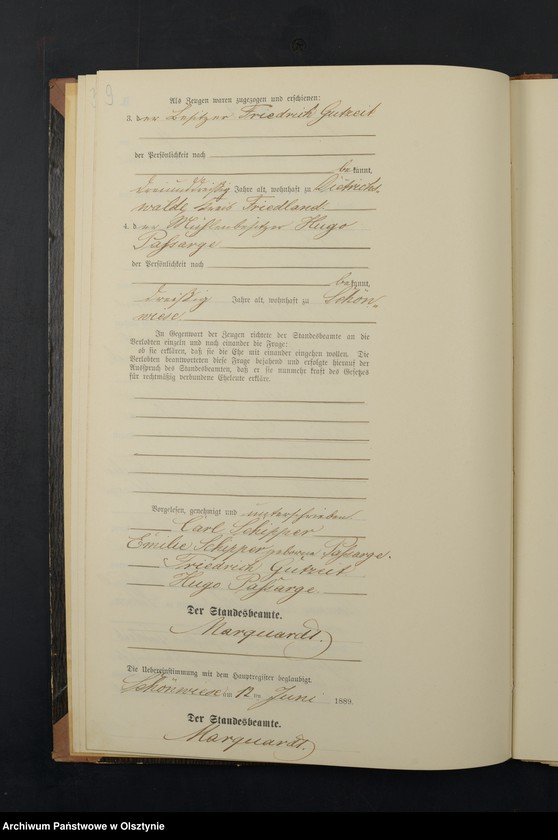 9
Als Zeugen waren zugezogen und erschienen:
3. der Besitzer Friedrich Gutzeit
der Persönlichkeit nach
bekannt,
dreiunddreißig Jahre alt, wohnhaft zu Dietrichs-
walde Kreis Friedland
4. der Mühlenbesitzer Hugo
Passarge
der Persönlichkeit nach
bekannt,
dreißig Jahre alt, wohnhaft zu Schön-
wiese.
In Gegenwart der Zeugen richtete der Standesbeamte an die
Verlobten einzeln und nach einander die Frage:
ob sie erklären, daß sie die Ehe mit einander eingehen wollen. Die
Verlobten beantworteten diese Frage bejahend und erfolgte hierauf der
Ausspruch des Standesbeamten, daß er sie nunmehr kraft des Gesetzes
für rechtmäßig verbundene Eheleute erkläre.
Vorgelesen, genehmigt und unterschrieben
Carl Schipper
Emilie Schipper geborene Passarge.
Friedrich Gutzeit
Hugo Passarge
Der Standesbeamte.
Marquardt.
Die Uebereinstimmung mit dem Hauptregister beglaubigt.
Schönwiese am 12 ten Juni 1889.
Der Standesbeamte.
Marquardt.
Archiwum Państwowe w Olsztynie